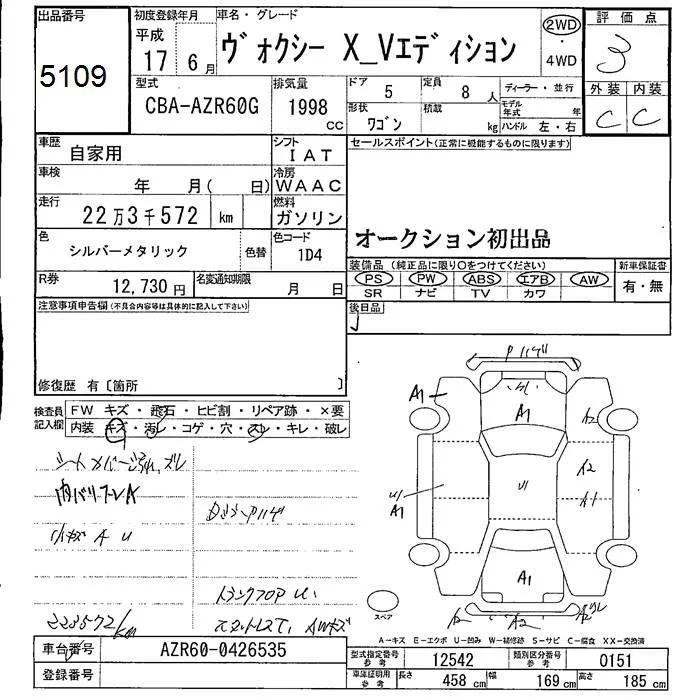 出品番号
5109
初度登録年月
平成
17 6月
車名・グレード
ヴォクシー X_Vエディション
2WD
・
4WD
評価点
3
外装 内装
C C
型式
CBA-AZR60G
排気量
1998
CC
ドア
5
定員
8 人
ディーラー・並行
形状
ワゴン
積載
kg
モデル年式 年
ハンドル 左・右
車歴
自家用
シフト
IAT
車検
年 月( 日)
冷房
WAAC
走行
22万3千572 km
燃料
ガソリン
色
シルバーメタリック
色替
色コード
1D4
R券
12,730円
名変通知期限
月 日
セールスポイント(正常に機能するものに限ります)
オークション初出品
装備品 (純正品に限り○をつけてください)
PS PW ABS エアB AW
SR ナビ TV カワ
新車保証書
有・無
後日品
注意事項申告欄(不具合内容等は具体的に記入して下さい)
修復歴 有〔箇所 〕
検査員記入欄
FW キズ・飛石・ヒビ割・リペア跡・×要
内装 キズ・汚レ・コゲ・穴・スレ・キレ・破レ
内ハリフレA
小キズ A U
223572/km
Pハゲ
A1
A1
A2
A1
U
U
A1
A1
A2
A2
スペア
A-キズ E-エクボ U-凹み W-補修跡 S-サビ C-腐食 XX-交換済
車台番号
AZR60-0426535
登録番号
型式指定番号
参考
12542
類別区分番号
参考
0151
車庫証明用
参考
長さ
458 cm
幅
169 cm
高さ
185 cm